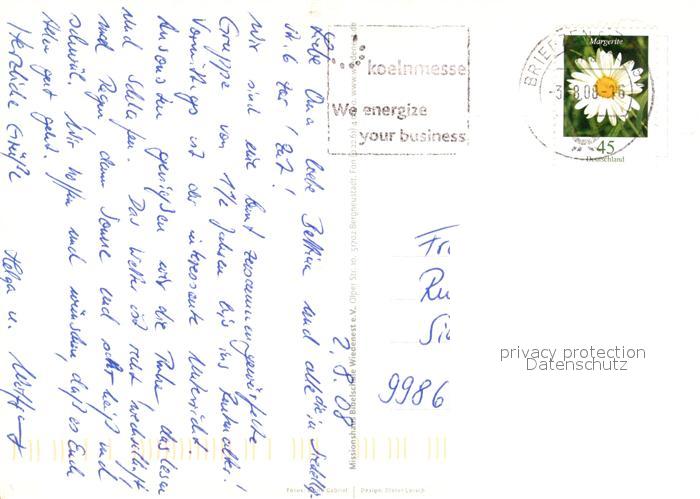 2.8.08
Liebe Oma, liebe Bettina und alle die in
Nr. 6 zur Zeit!
Wir sind eine bunt zusammengewürfelte
Gruppe von 1½ Jahren bis ins Rentenalter!
Vormittags ist der interessante Unterricht.
Ansonsten genießen wir die Ruhe, das Lesen
und Schlafen. Das Wetter ist recht wechselhaft
mal Regen, dann Sonne und sehr heiß und
schwül. Wir hoffen und wünschen, daß es Euch
allen gut geht.
Herzliche Grüße
Helga u.
koelnmesse
We energize
your business
BRIEFZEN
-3.8.08-16
Margerite
45
Deutschland
Missionshaus Bibelschule Wiedenest e.V. Olper Str. 10, 51702 Bergneustadt, www.wiedenest.de
Fr
Ru
Si
9986
privacy protection
Datenschutz
Fotos: Gabriel | Design: Dieter Lorsch